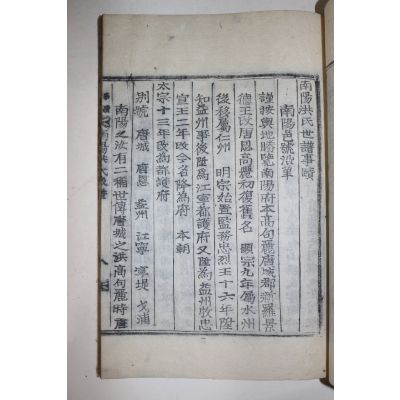 南陽洪氏世譜事蹟
南陽邑號沿革
謹按輿地勝覽南陽府本高句麗唐城郡新羅景
德王改唐恩高麗初復舊名 顯宗九年屬水州
後移屬仁州 明宗始置監務忠烈王十六年陞
知益州事後陞爲江寧都護府又陞爲益州牧忠
宣王二年改今名降爲府 本朝
太宗十三年改爲都護府
別號 唐城 唐恩 益州 江寧 寧堤 戈浦
南陽之洪有二籍世傳唐城之洪高句麗時唐
南陽洪氏